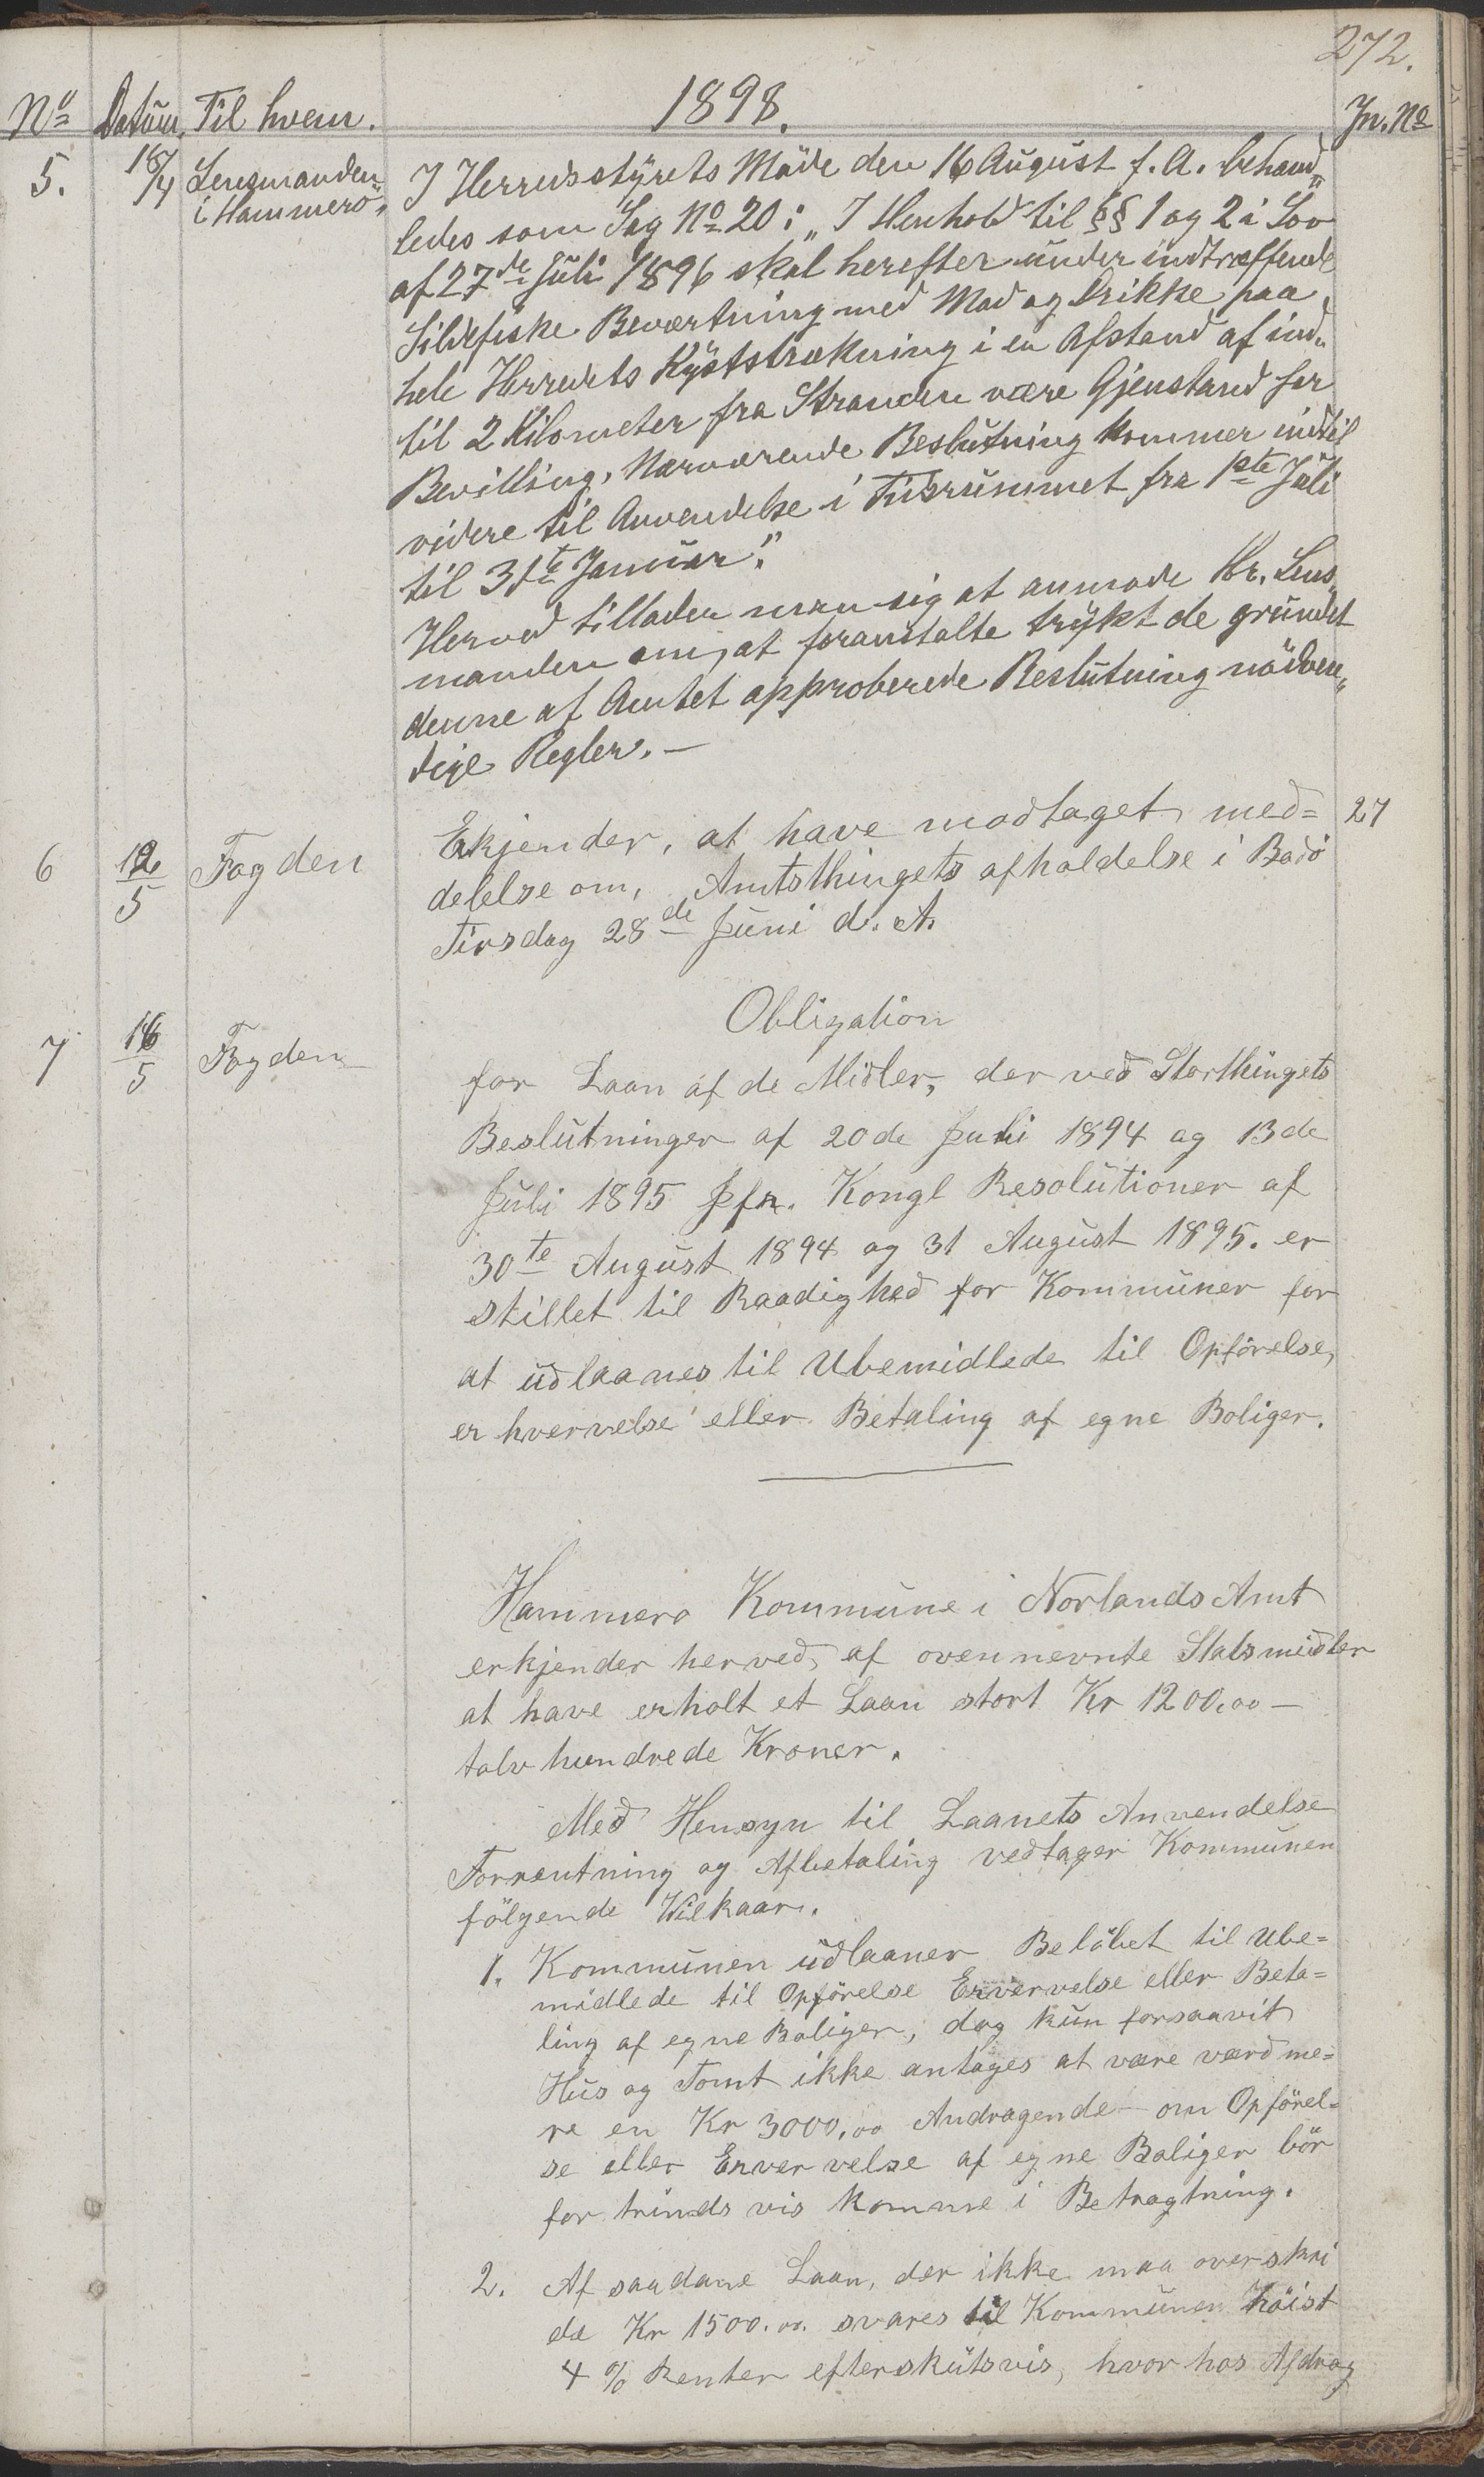 272.
1898.
No Datum. Til hvem. Jn. No
5. 18/4 Lensmanden
i Hammerö.
I Herredsstyrets Möde den 16 August f. A. behand„
ledes som Sag No 20: „I Henhold til §§ 1 og 2 i Lov
af 27de Juli 1896 skal herefter under indtræffende
Sildefiske Beværtning med Mad og Drikke paa
hele Herredets Kyststrækning i en Afstand af ind„
til 2 Kilometer fra Stranden være Gjenstand for
Bevilling. Nærværende Beslutning kommer indtil
videre til Anvendelse i Tidsrummet fra 1ste Juli
til 31te Januar."
Herved tillader man sig at anmode Hr. Lens„
manden om, at foranstalte trykt de grundet
denne af Amtet approberede Beslutning nödven„
dige Regler. —
6 12/5 Fogden
Erkjender, at have modtaget med= 27
delelse om, Amtsthingets afholdelse i Bodö
Tirsdag 28de Juni d. A.
Obligation
7 16/5 Fogden
for Laan af de Midler, der ved Storthingets
Beslutninger af 20de Juli 1894 og 13de
Juli 1895 Jfr. Kongl Resolutioner af
30te August 1894 og 31 August 1895. er
stillet til Raadighed for Kommuner for
at udlaanes til Ubemidlede til Opförelse,
er hvervelse eller Betaling af egne Boliger.
Hammerø Kommune i Norlands Amt
erkjender herved, af ovennevnte Statsmidler
at have erholt et Laan stort Kr 1200.00 —
tolv hundrede Kroner.
Med Hensyn til Laanets Anvendelse
Forrentning og Afbetaling vedtager Kommunen
fölgende Vilkaar.
1. Kommunen udlaaner Belöbet til Ube=
midlede til Opförelse Erververlse eller Beta=
ling af egne Boliger, dog kun forsaavit
Hus og Tomt ikke antages at være værd me=
re en Kr 3000,00 Andragende om Opförel=
se eller Erver velse af egne Boliger bör
for trinds vis komme i Betragtning.
2. Af saadane Laan, der ikke maa overskri
de Kr 1500.00. svares til Kommunen höist
4 % Renter efterskutsvis, hvor hos Afdrag